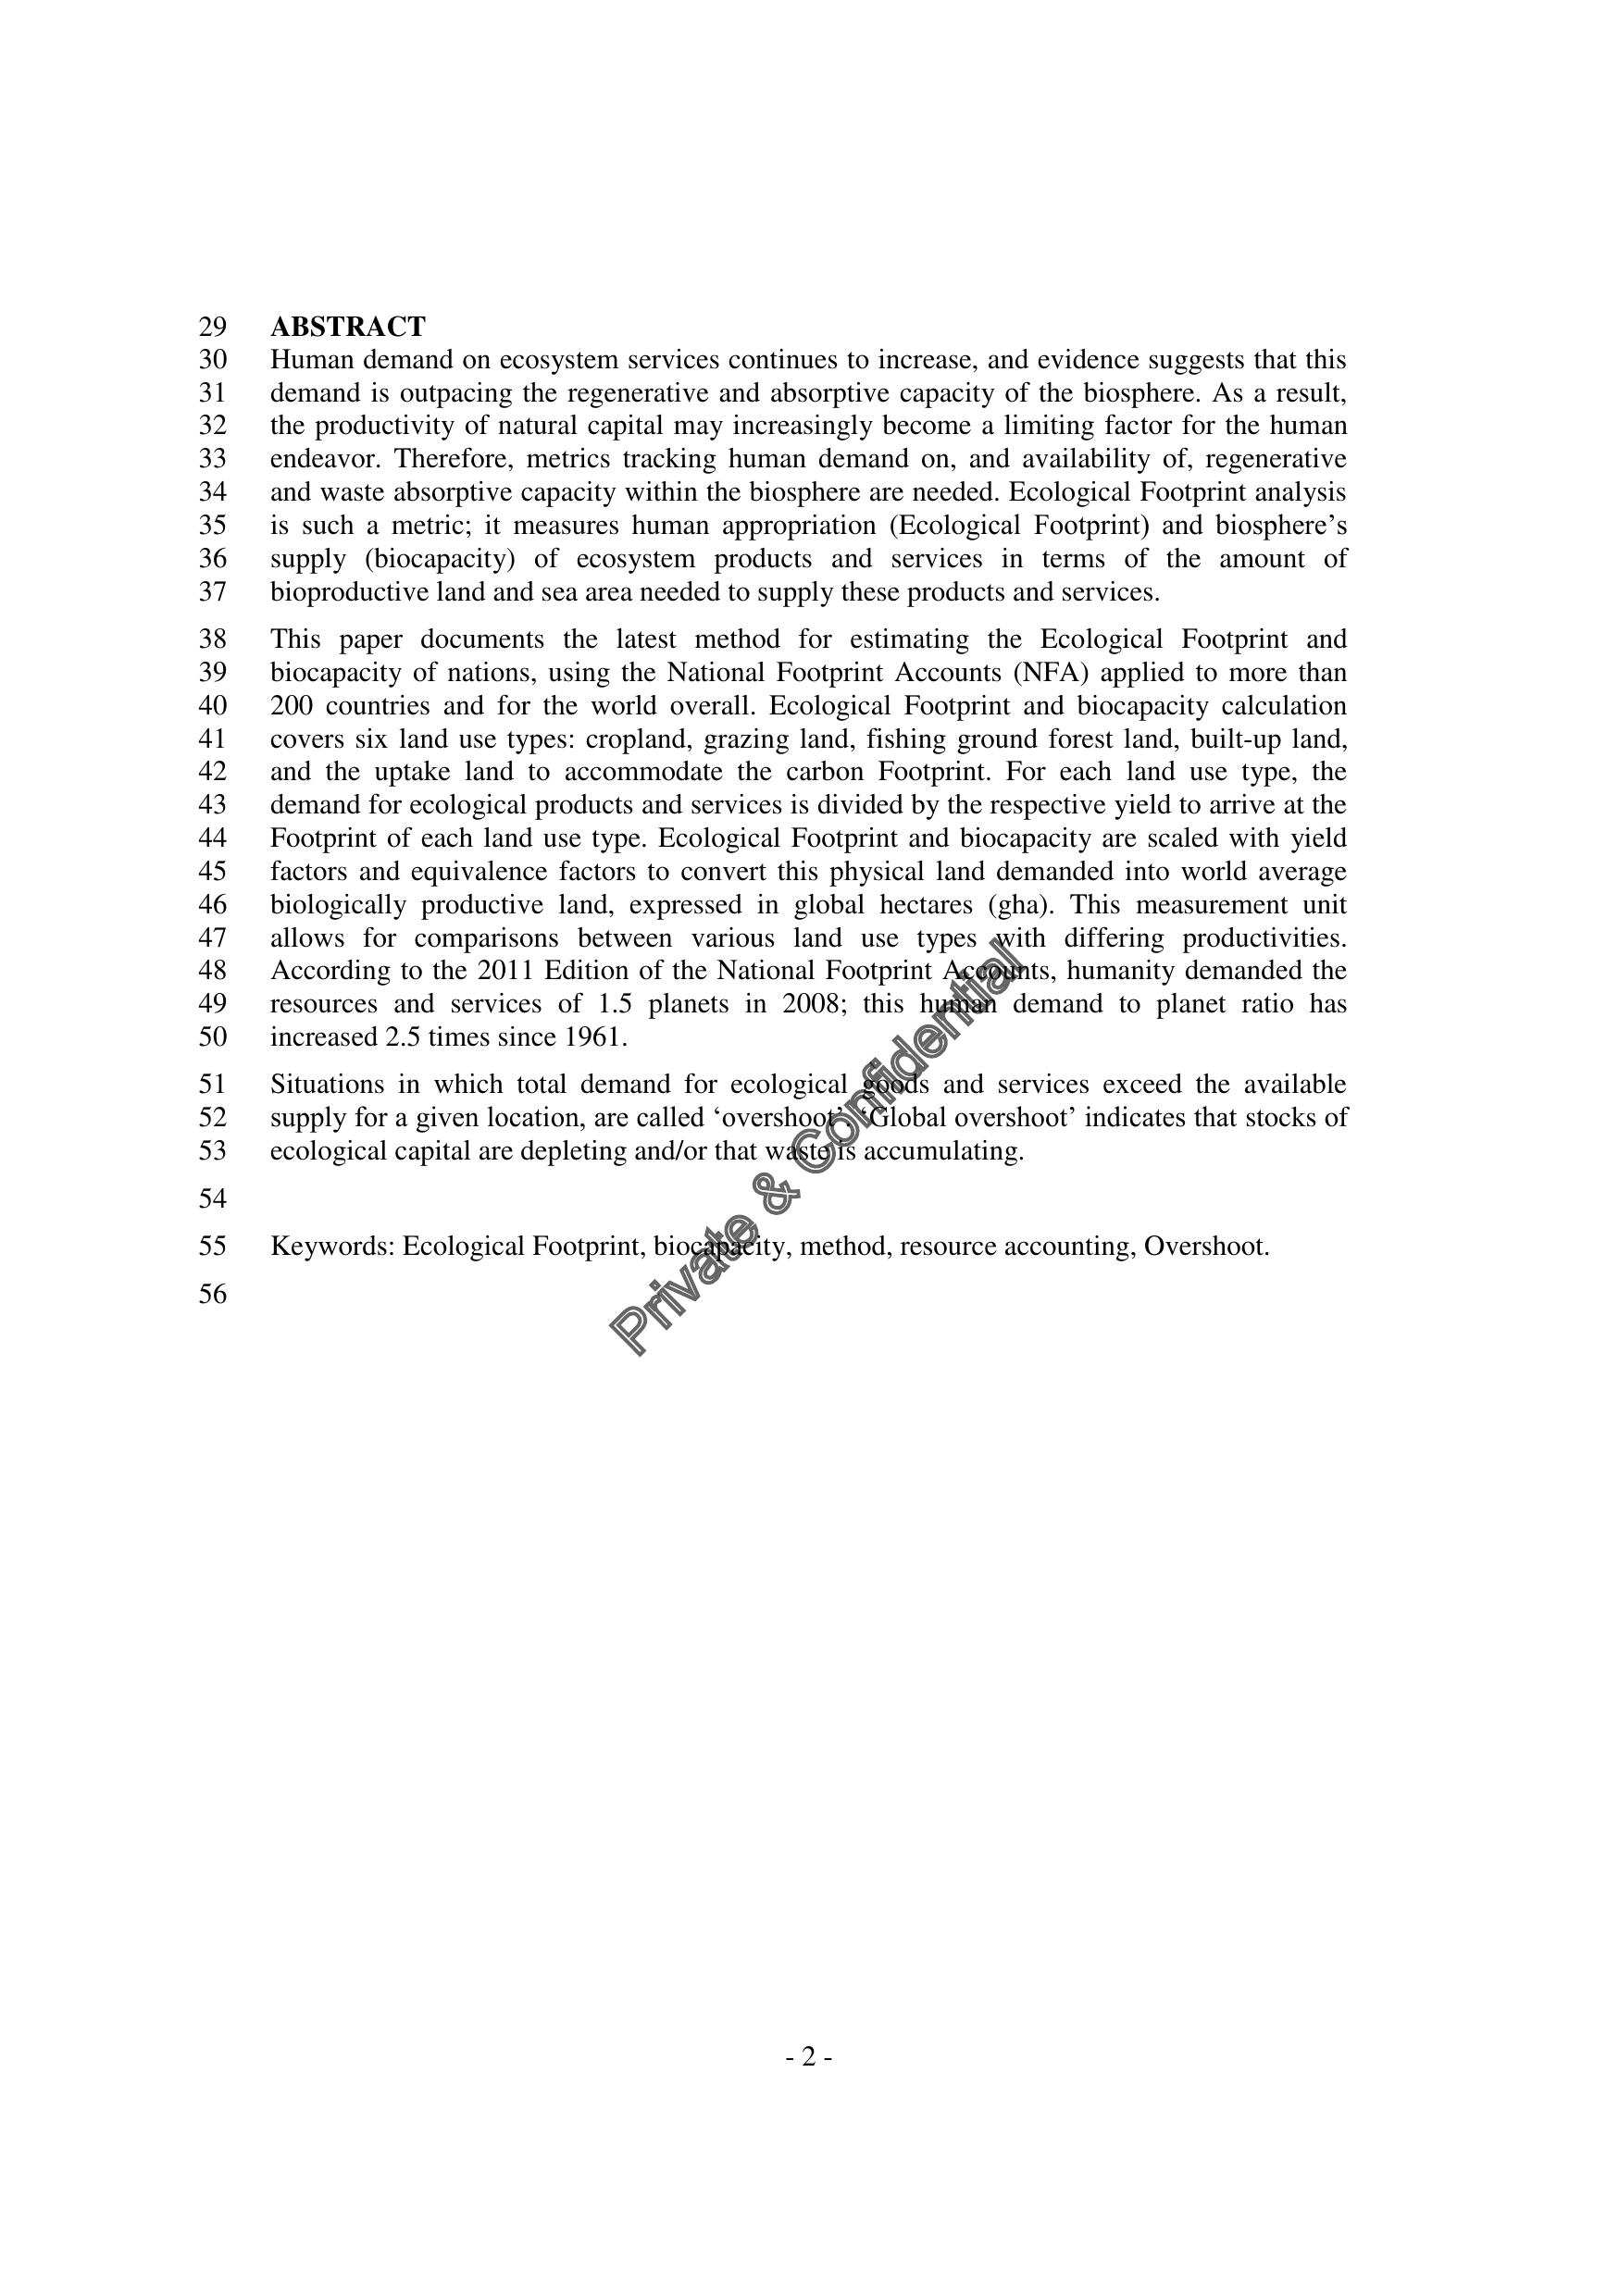 29 ABSTRACT
30 Human demand on ecosystem services continues to increase, and evidence suggests that this
31 demand is outpacing the regenerative and absorptive capacity of the biosphere. As a result,
32 the productivity of natural capital may increasingly become a limiting factor for the human
33 endeavor. Therefore, metrics tracking human demand on, and availability of, regenerative
34 and waste absorptive capacity within the biosphere are needed. Ecological Footprint analysis
35 is such a metric; it measures human appropriation (Ecological Footprint) and biosphere’s
36 supply (biocapacity) of ecosystem products and services in terms of the amount of
37 bioproductive land and sea area needed to supply these products and services.
38 This paper documents the latest method for estimating the Ecological Footprint and
39 biocapacity of nations, using the National Footprint Accounts (NFA) applied to more than
40 200 countries and for the world overall. Ecological Footprint and biocapacity calculation
41 covers six land use types: cropland, grazing land, fishing ground forest land, built-up land,
42 and the uptake land to accommodate the carbon Footprint. For each land use type, the
43 demand for ecological products and services is divided by the respective yield to arrive at the
44 Footprint of each land use type. Ecological Footprint and biocapacity are scaled with yield
45 factors and equivalence factors to convert this physical land demanded into world average
46 biologically productive land, expressed in global hectares (gha). This measurement unit
47 allows for comparisons between various land use types with differing productivities.
48 According to the 2011 Edition of the National Footprint Accounts, humanity demanded the
49 resources and services of 1.5 planets in 2008; this human demand to planet ratio has
50 increased 2.5 times since 1961.
51 Situations in which total demand for ecological goods and services exceed the available
52 supply for a given location, are called ‘overshoot’. ‘Global overshoot’ indicates that stocks of
53 ecological capital are depleting and/or that waste is accumulating.
54
55 Keywords: Ecological Footprint, biocapacity, method, resource accounting, Overshoot.
56
Private & Confidential
- 2 -